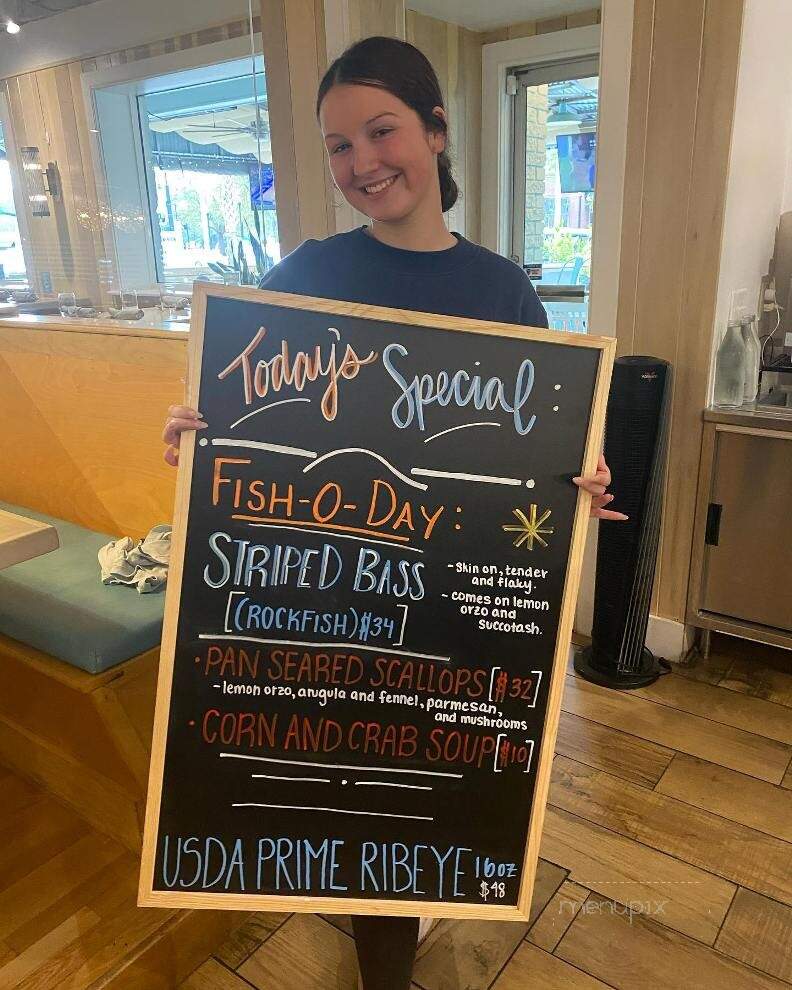 Today's Special:
FISH-O-DAY:
STRIPED BASS
[(ROCKFISH) $34]
- Skin on, tender
and flaky.
- comes on lemon
orzo and
succotash.
• PAN SEARED SCALLOPS [$32]
- lemon orzo, arugula and fennel, parmesan,
and mushrooms
• CORN AND CRAB SOUP [$10]
USDA PRIME RIBEYE 16oz
$48
menupix